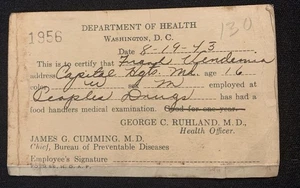 DEPARTMENT OF HEALTH
WASHINGTON, D. C.
1956
130
Date 8-19-43
This is to certify that Frank Vendemia
address Capitol Hgts. Md. age 16
color W sex M employed at
Peoples Drugs has had a
food handlers medical examination. Good for one year.
GEORGE C. RUHLAND, M. D.,
Health Officer.
JAMES G. CUMMING, M. D.
Chief, Bureau of Preventable Diseases
Employee's Signature